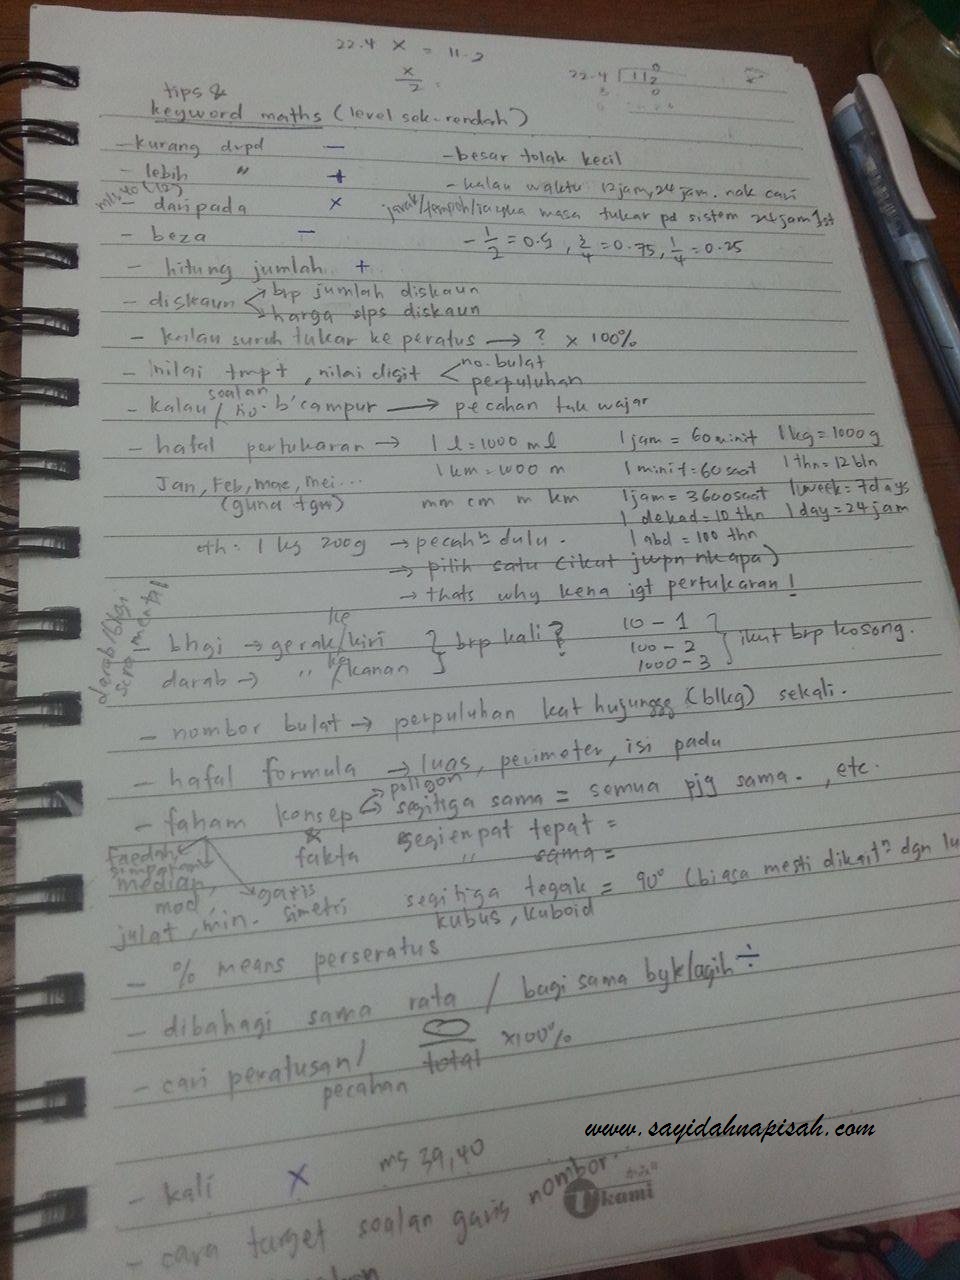 22.4 x = 11.2
x/2 =
22.4 112
tips &
keyword maths (level sek. rendah)
- kurang drpd −
- besar tolak kecil
- lebih " +
- kalau waktu 12 jam, 24 jam. nak cari
- daripada x
jarak/tempoh/jangka masa tukar pd sistem 24 jam 1st
- beza −
- 1/2 = 0.5, 3/4 = 0.75, 1/4 = 0.25
- hitung jumlah +
- diskaun brp jumlah diskaun
harga slps diskaun
- kalau suruh tukar ke peratus → ? x 100%
- nilai tmpt, nilai digit no. bulat
perpuluhan
- kalau soalan / no. b'campur → pecahan tak wajar
- hafal pertukaran → 1 l = 1000 ml 1 jam = 60 minit 1 kg = 1000 g
Jan, Feb, mac, mei... 1 km = 1000 m 1 minit = 60 saat 1 thn = 12 bln
(guna tgn) mm cm m km 1 jam = 3600 saat 1 week = 7 days
1 dekad = 10 thn 1 day = 24 jam
cth: 1 kg 200g → pecahn dulu. 1 abd = 100 thn
→ pilih satu (ikut jwpn nk apa)
→ thats why kena igt pertukaran!
darab/bhgi
bhgi → gerak ke/kiri } brp kali? 10 - 1
darab → " ke/kanan 100 - 2 } ikut brp kosong.
1000 - 3
- nombor bulat → perpuluhan kat hujung (blkg) sekali.
- hafal formula → luas, perimeter, isi padu
- faham konsep → poligon
segitiga sama = semua pjg sama., etc.
fakta segiempat tepat =
" sama =
faedah
simpanan
median,
mod,
julat, min. garis
simetri
segitiga tegak = 90° (biasa mesti dikaitn dgn
kubus, kuboid
- % means perseratus
- dibahagi sama rata / bagi sama byk/agih ÷
- cari peratusan/ total x100%
pecahan
- kali x ms 39, 40
- cara target soalan garis nombor.
www.sayidahnapisah.com
kami